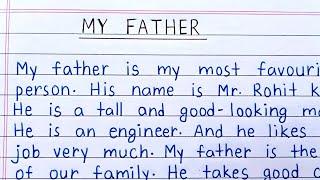 MY FATHER
My father is my most favouri
person. His name is Mr. Rohit k
He is a tall and good-looking m
He is an engineer. And he likes
job very much. My father is the
of our family. He takes good c